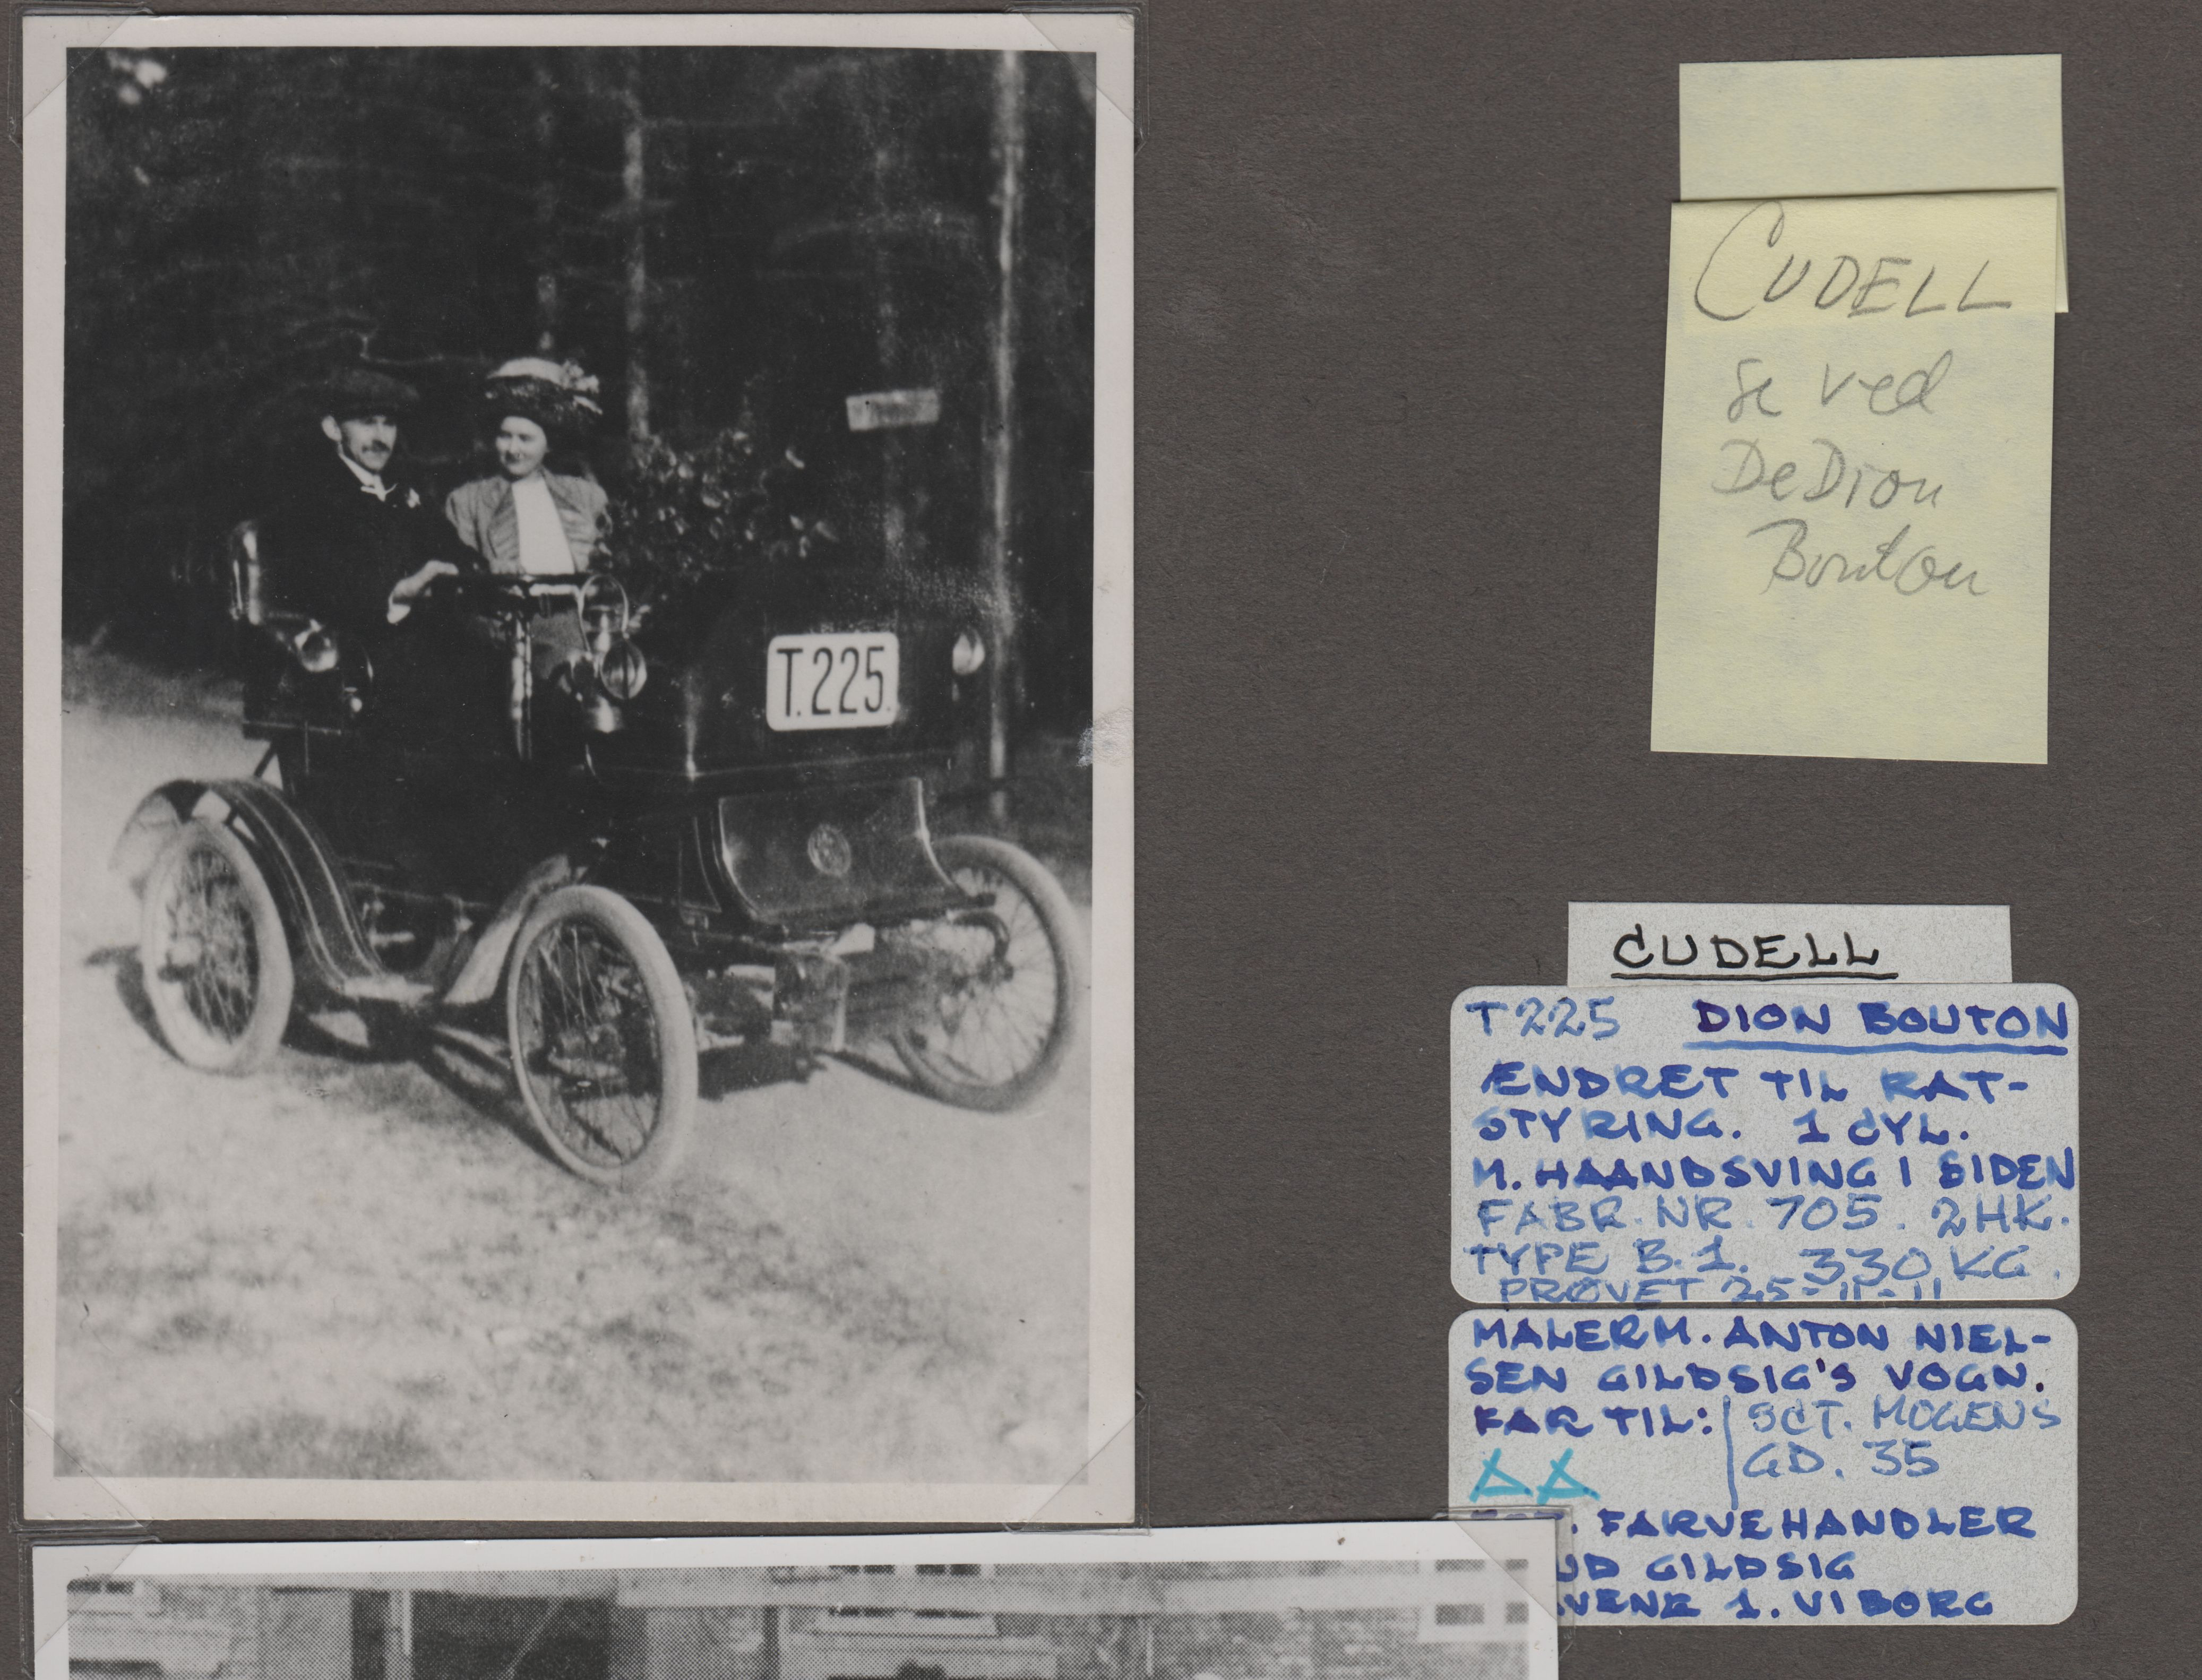 T.225.
CUDELL
se ved
DeDion
Bouton
CUDELL
T225 DION BOUTON
ÆNDRET TIL RAT-
STYRING. 1 CYL.
M. HAANDSVING I SIDEN
FABR. NR. 705. 2HK.
TYPE B.1. 330 KG.
PRØVET 25-11-11
MALERM. ANTON NIEL-
SEN GILDSIG'S VOGN.
FAR TIL: SCT. MOGENS
GD. 35
FARVEHANDLER
UD GILDSIG
1. VIBORG